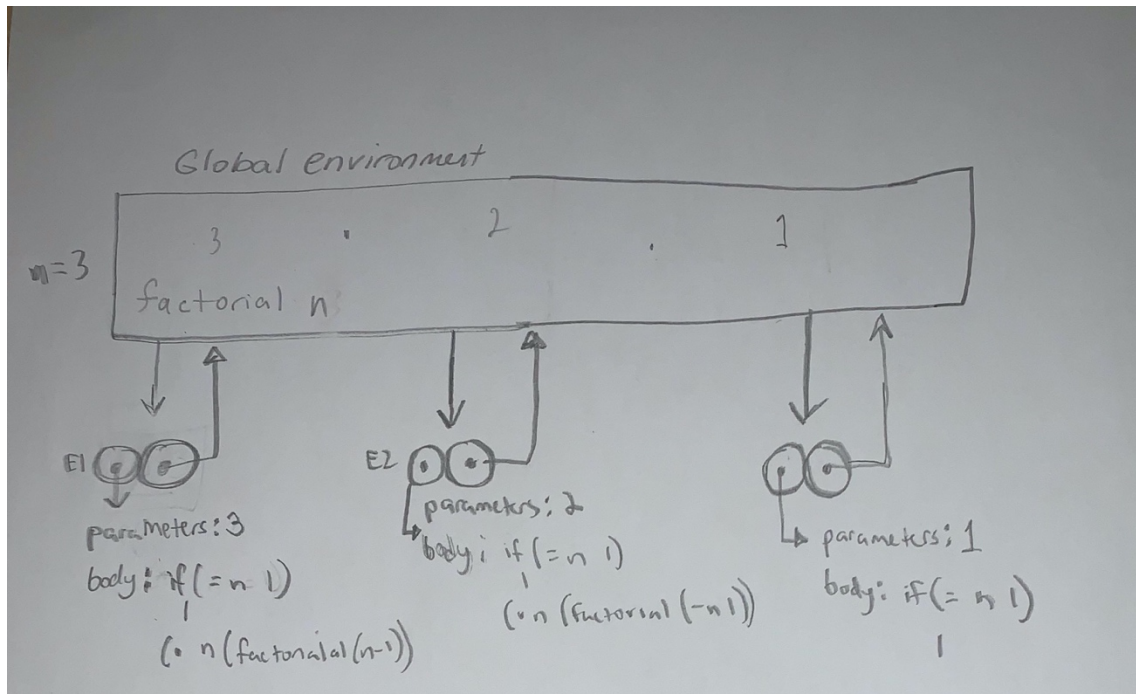 Global environment
3 . 2 . 1
n=3
factorial n
E1
E2
parameters: 3
body: if (= n 1)
1
(. n (factorialal (n-1))
parameters: 2
body: if (= n 1)
1
(. n (factorial (-n 1))
parameters: 1
body: if (= n 1)
1